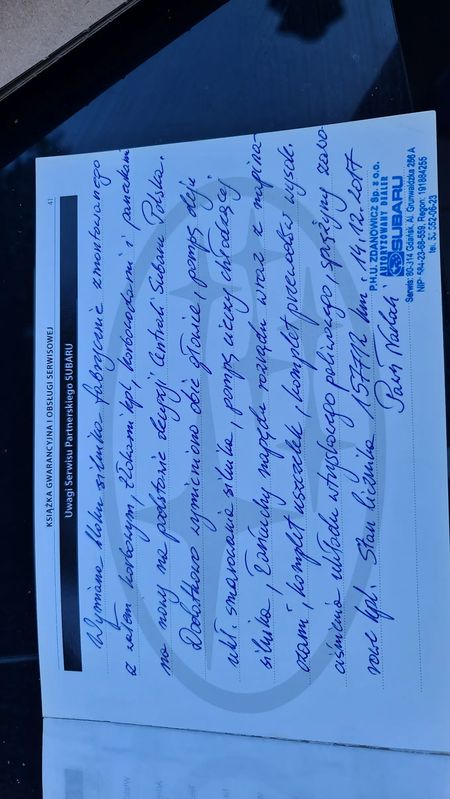 KSIĄŻKA GWARANCYJNA I OBSŁUGI SERWISOWEJ
41
Uwagi Serwisu Partnerskiego SUBARU
Wymiana bloku silnika fabrycznie zmontowanego
z wałem korbowym, tłokami kpl, korbowodami i panewkami
na nowy na podstawie decyzji Centrali Subaru Polska.
Dodatkowo wymieniono obie głowice, pompę oleju
ukł. smarowania silnika, pompę cieczy chłodzącej
silnika, łańcuchy napędu rozrządu wraz z napina-
czami, komplet uszczelek, komplet przewodów wysok.
ciśnienia układu wtryskowego paliwowego, sprężyny zawo
rowe kpl. Stan licznika km. 14.12.2017
P.H.U. ZDANOWICZ Sp. z o.o.
AUTORYZOWANY DEALER
SUBARU
Serwis: 80-314 Gdańsk, Al. Grunwaldzka 256 A
NIP 584-23-88-559, Regon: 191884255